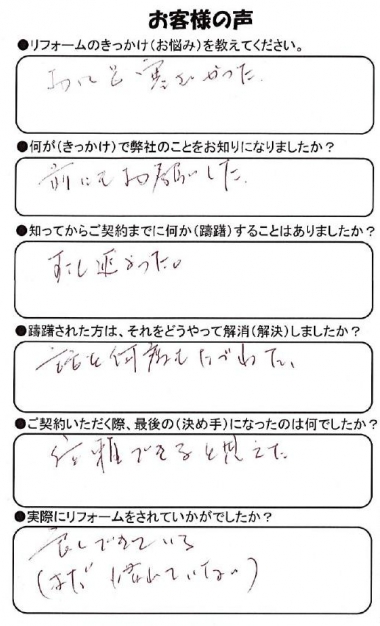 お客様の声
●リフォームのきっかけ(お悩み)を教えてください。
●何が(きっかけ)で弊社のことをお知りになりましたか?
前にもお願いした。
●知ってからご契約までに何か(躊躇)することはありましたか?
●躊躇された方は、それをどうやって解消(解決)しましたか?
●ご契約いただく際、最後の(決め手)になったのは何でしたか?
できると思えた
●実際にリフォームをされていかがでしたか?
良しできている
(まだ慣れていない)